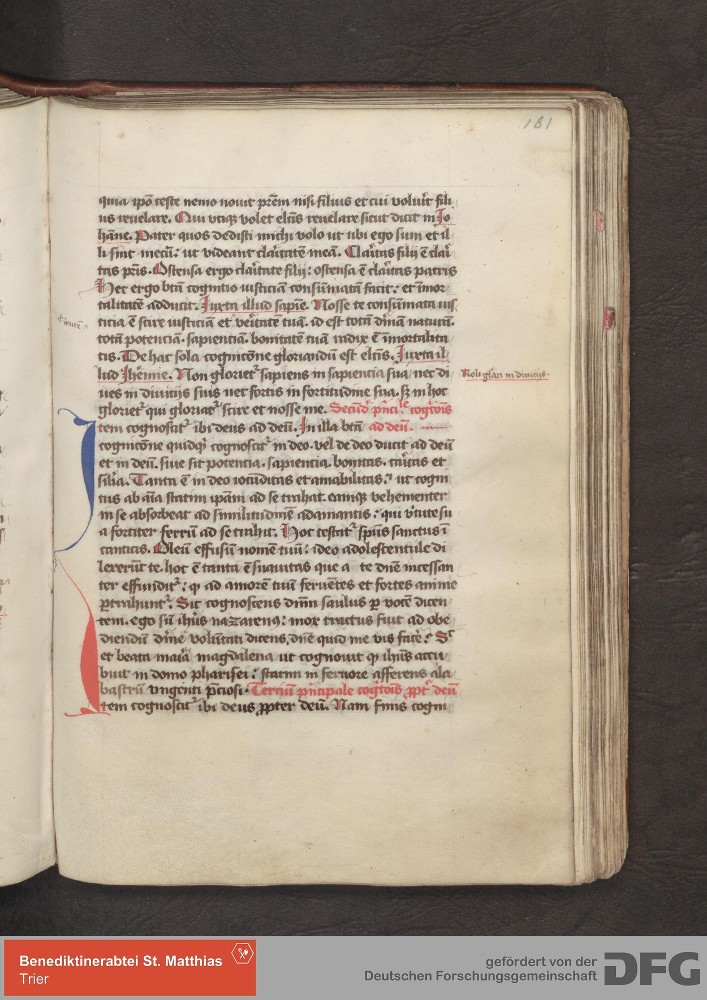 181
quia ip̄o teste nemo nouit pr̄em nisi filius et cui voluīt fili
us reuelare. Qui vtiqȝ volet elc̄is reuelare sicut dicit in Jo
hāne. Pater quos dedisti michi volo ut ubi ego sum et il
li sint mecū: ut videant claītatē meā. Claītas filij ē claī
tas pr̄is. Ostensa ergo claītate filij: ostensa ē claītas patris
Hec ergo btā cognitio iusticiā consūmatā facit: et īmor
talitatē adducit. Juxta illud sapīe. Nosse te consūmata ius
ticia ē scire iusticiā et v̄itatē tuā. id est totā diuinā naturā.
totā potenciā. sapienciā. bonitatē tuā radix ē īmortalita
tis. De hac sola cognicōne gloriandū est elc̄is. Juxta il
lud Jhemie. Non glorieť sapiens in sapiencia sua nec di
ues in diuicijs suis nec fortis in fortitudine sua. sȝ in hoc
glorieť qui gloriať scire et nosse me. Secūd̄ pn̄ci.le coḡtōis
Noli glāri in diuicijs.
tem cognosciť ibi deus ad deū. In illa btā ad deū.
cognicōne quidqȝ cognosciť in deo. vel de deo ducit ad deū
et in deū. siue sit potencia. sapiencia. bonitas. cāitas et
sīlia. Tanta ē in deo iocūditas et amabilitas: ut cogni
tus ab aīa statim ipām ad se trahat. eamqȝ vehementer
in se absorbeat ad similitudinē adamantis: qui v̄tute su
a fortiter ferrū ad se trahit. Hoc testať spūs sanctus ī
canticis. Oleū effusū nomē tuū: ideo adolescentule di
lexerūt te. hoc ē tanta ē suauitas que a te dn̄e incessan
ter effundiť: qȝ ad amorē tuū feruētes et fortes anime
ptrahunť. Sic cognoscens dn̄m saulus p vocē dicen
tem. ego sū ih̄us nazzarenꝰ: mox tractus fuit ad obe
diendū diuīe volūtati dicens, dn̄e quid me vis facē? Sꝰ
et beata maīa magdalena ut cognouit qȝ ih̄us accu
buit in domo pharisei: statim in feruore afferens ala
bastrū vngenti p̄ciosi. Terciū pn̄cipale coḡtōis ppť deū
tem cognosciť ibi deus ppter deū. Nam finis cogni
Benediktinerabtei St. Matthias
Trier
gefördert von der
Deutschen Forschungsgemeinschaft
DFG